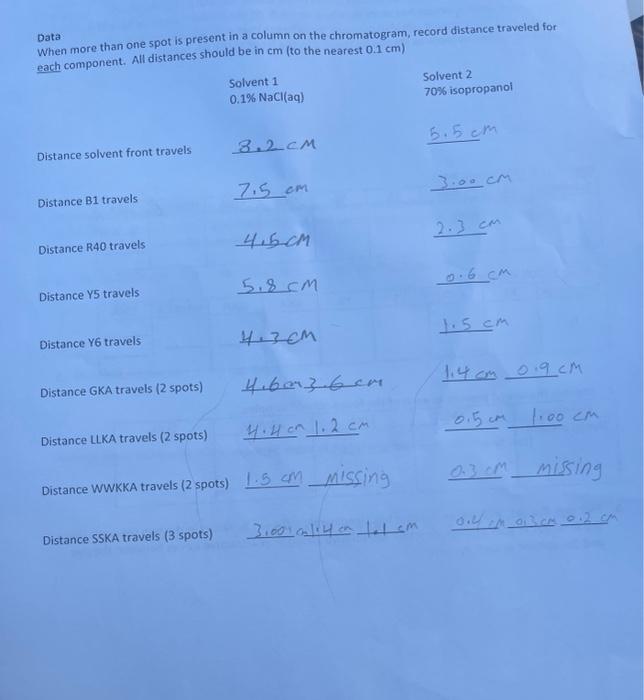 Data
When more than one spot is present in a column on the chromatogram, record distance traveled for
each component. All distances should be in cm (to the nearest 0.1 cm)
Solvent 1 Solvent 2
0.1% NaCl(aq) 70% isopropanol
Distance solvent front travels 8.2 cm 5.5 cm
Distance B1 travels 7.5 cm 3.00 cm
Distance R40 travels 4.5 cm 2.3 cm
Distance Y5 travels 5.8 cm 0.6 cm
Distance Y6 travels 4.3 cm 1.5 cm
Distance GKA travels (2 spots) 4.6 cm 3.6 cm 1.4 cm 0.9 cm
Distance LLKA travels (2 spots) 4.4 cm 1.2 cm 0.5 cm 1.00 cm
Distance WWKKA travels (2 spots) 1.5 cm missing 0.3 cm missing
Distance SSKA travels (3 spots) 3.00 cm 1.4 cm 1.1 cm 0.4 cm 0.3 cm 0.2 cm